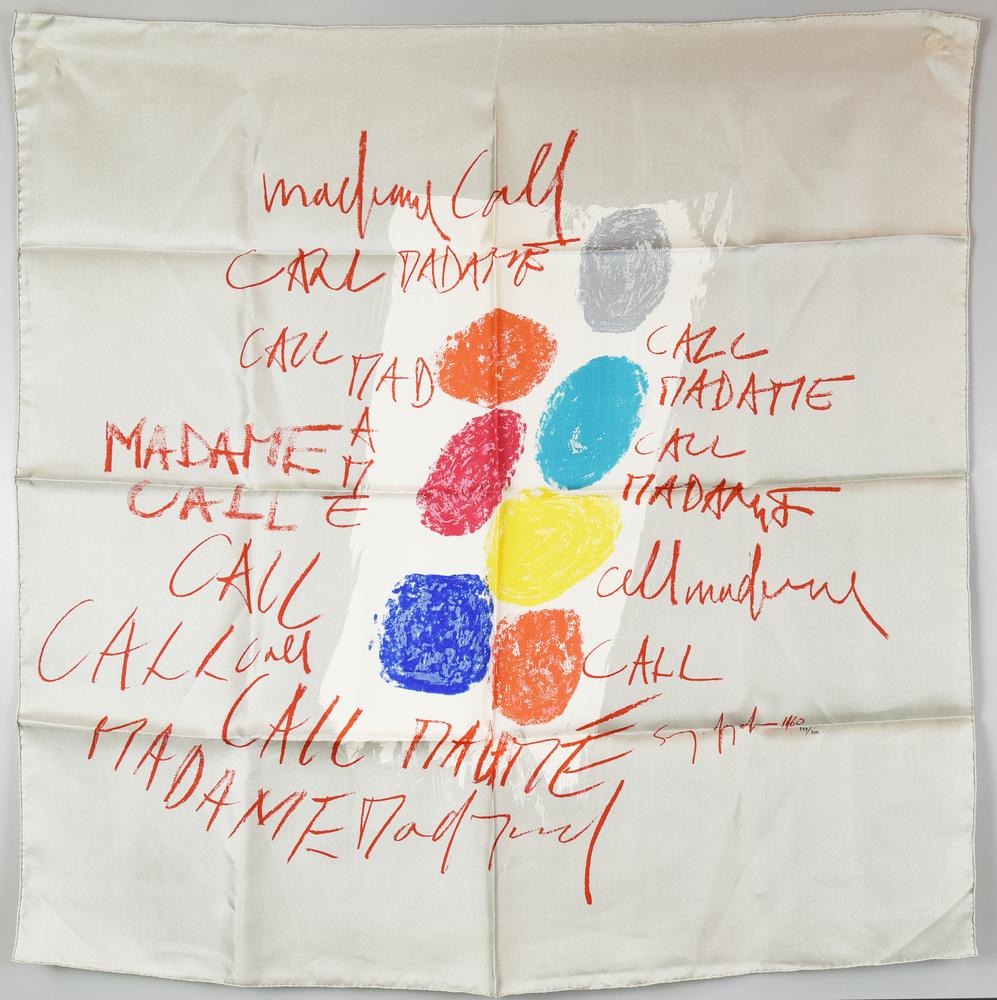 madame Call
CARL MADAME
CALL MADAME
CALL
MADAME
MADAME
CALL
CALL
MADAME
CALL
call madame
CALL call
CALL
CALL MADAME
1960
MADAME Madame